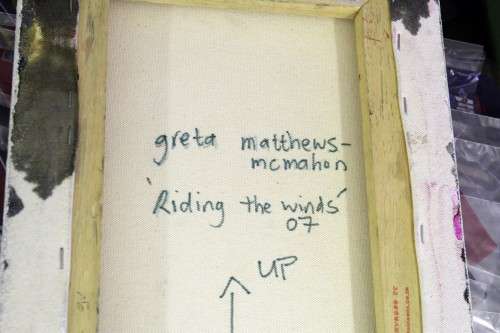 greta matthews-
mcmahon
'Riding the winds'
07
UP